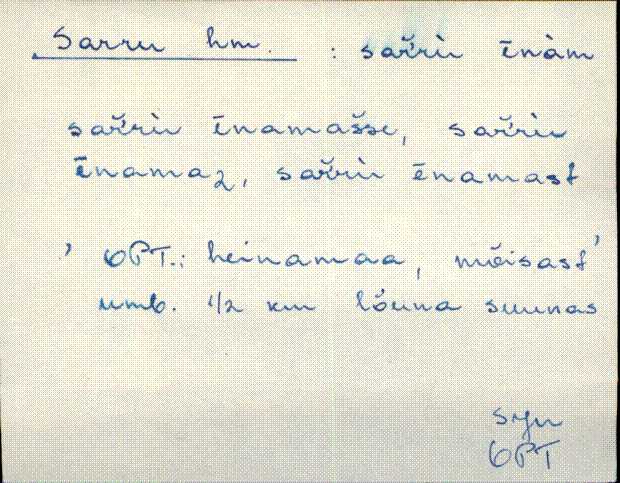 Sarru hm. : sar̆rù ēnàm
sar̆rù ēnamas̆se, sar̆rù
ēnamaz, sar̆rù ēnamast
' OPT.: heinamaa, mõisast'
umb. 1/2 km lõuna suunas
syn
OPT